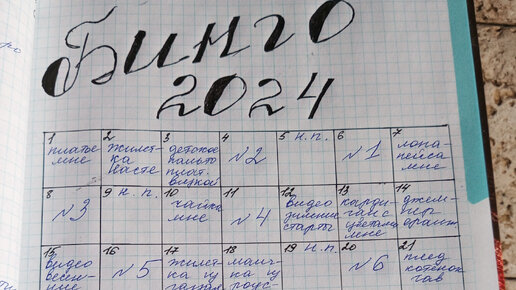 Бинго
2024
1 платье мне
2 жилетка Насте
3 детское пальто плат. вязкой
4 №2
5 н.п.
6 №1
7 лонапейса мне
8 №3
9 н.п.
10 чайка мне
11 №4
12 видео зимние старты
13 кардиган с цветами мне
14 джемпер оранж
15 видео весенние
16 №5
17 жилетка из
18 маичка из
19 н.п.
20 №6
21 плед котенок гав